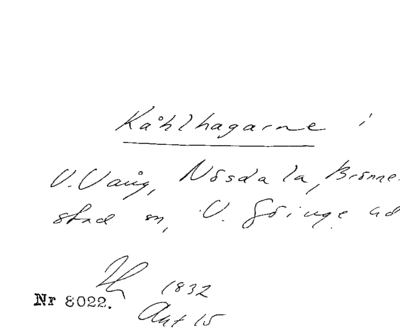 Kåhlhagarne i
V. Vång, Nösdala, Brönne-
stad sn, V. Göinge hd
1832
Nr 8022. Akt 15